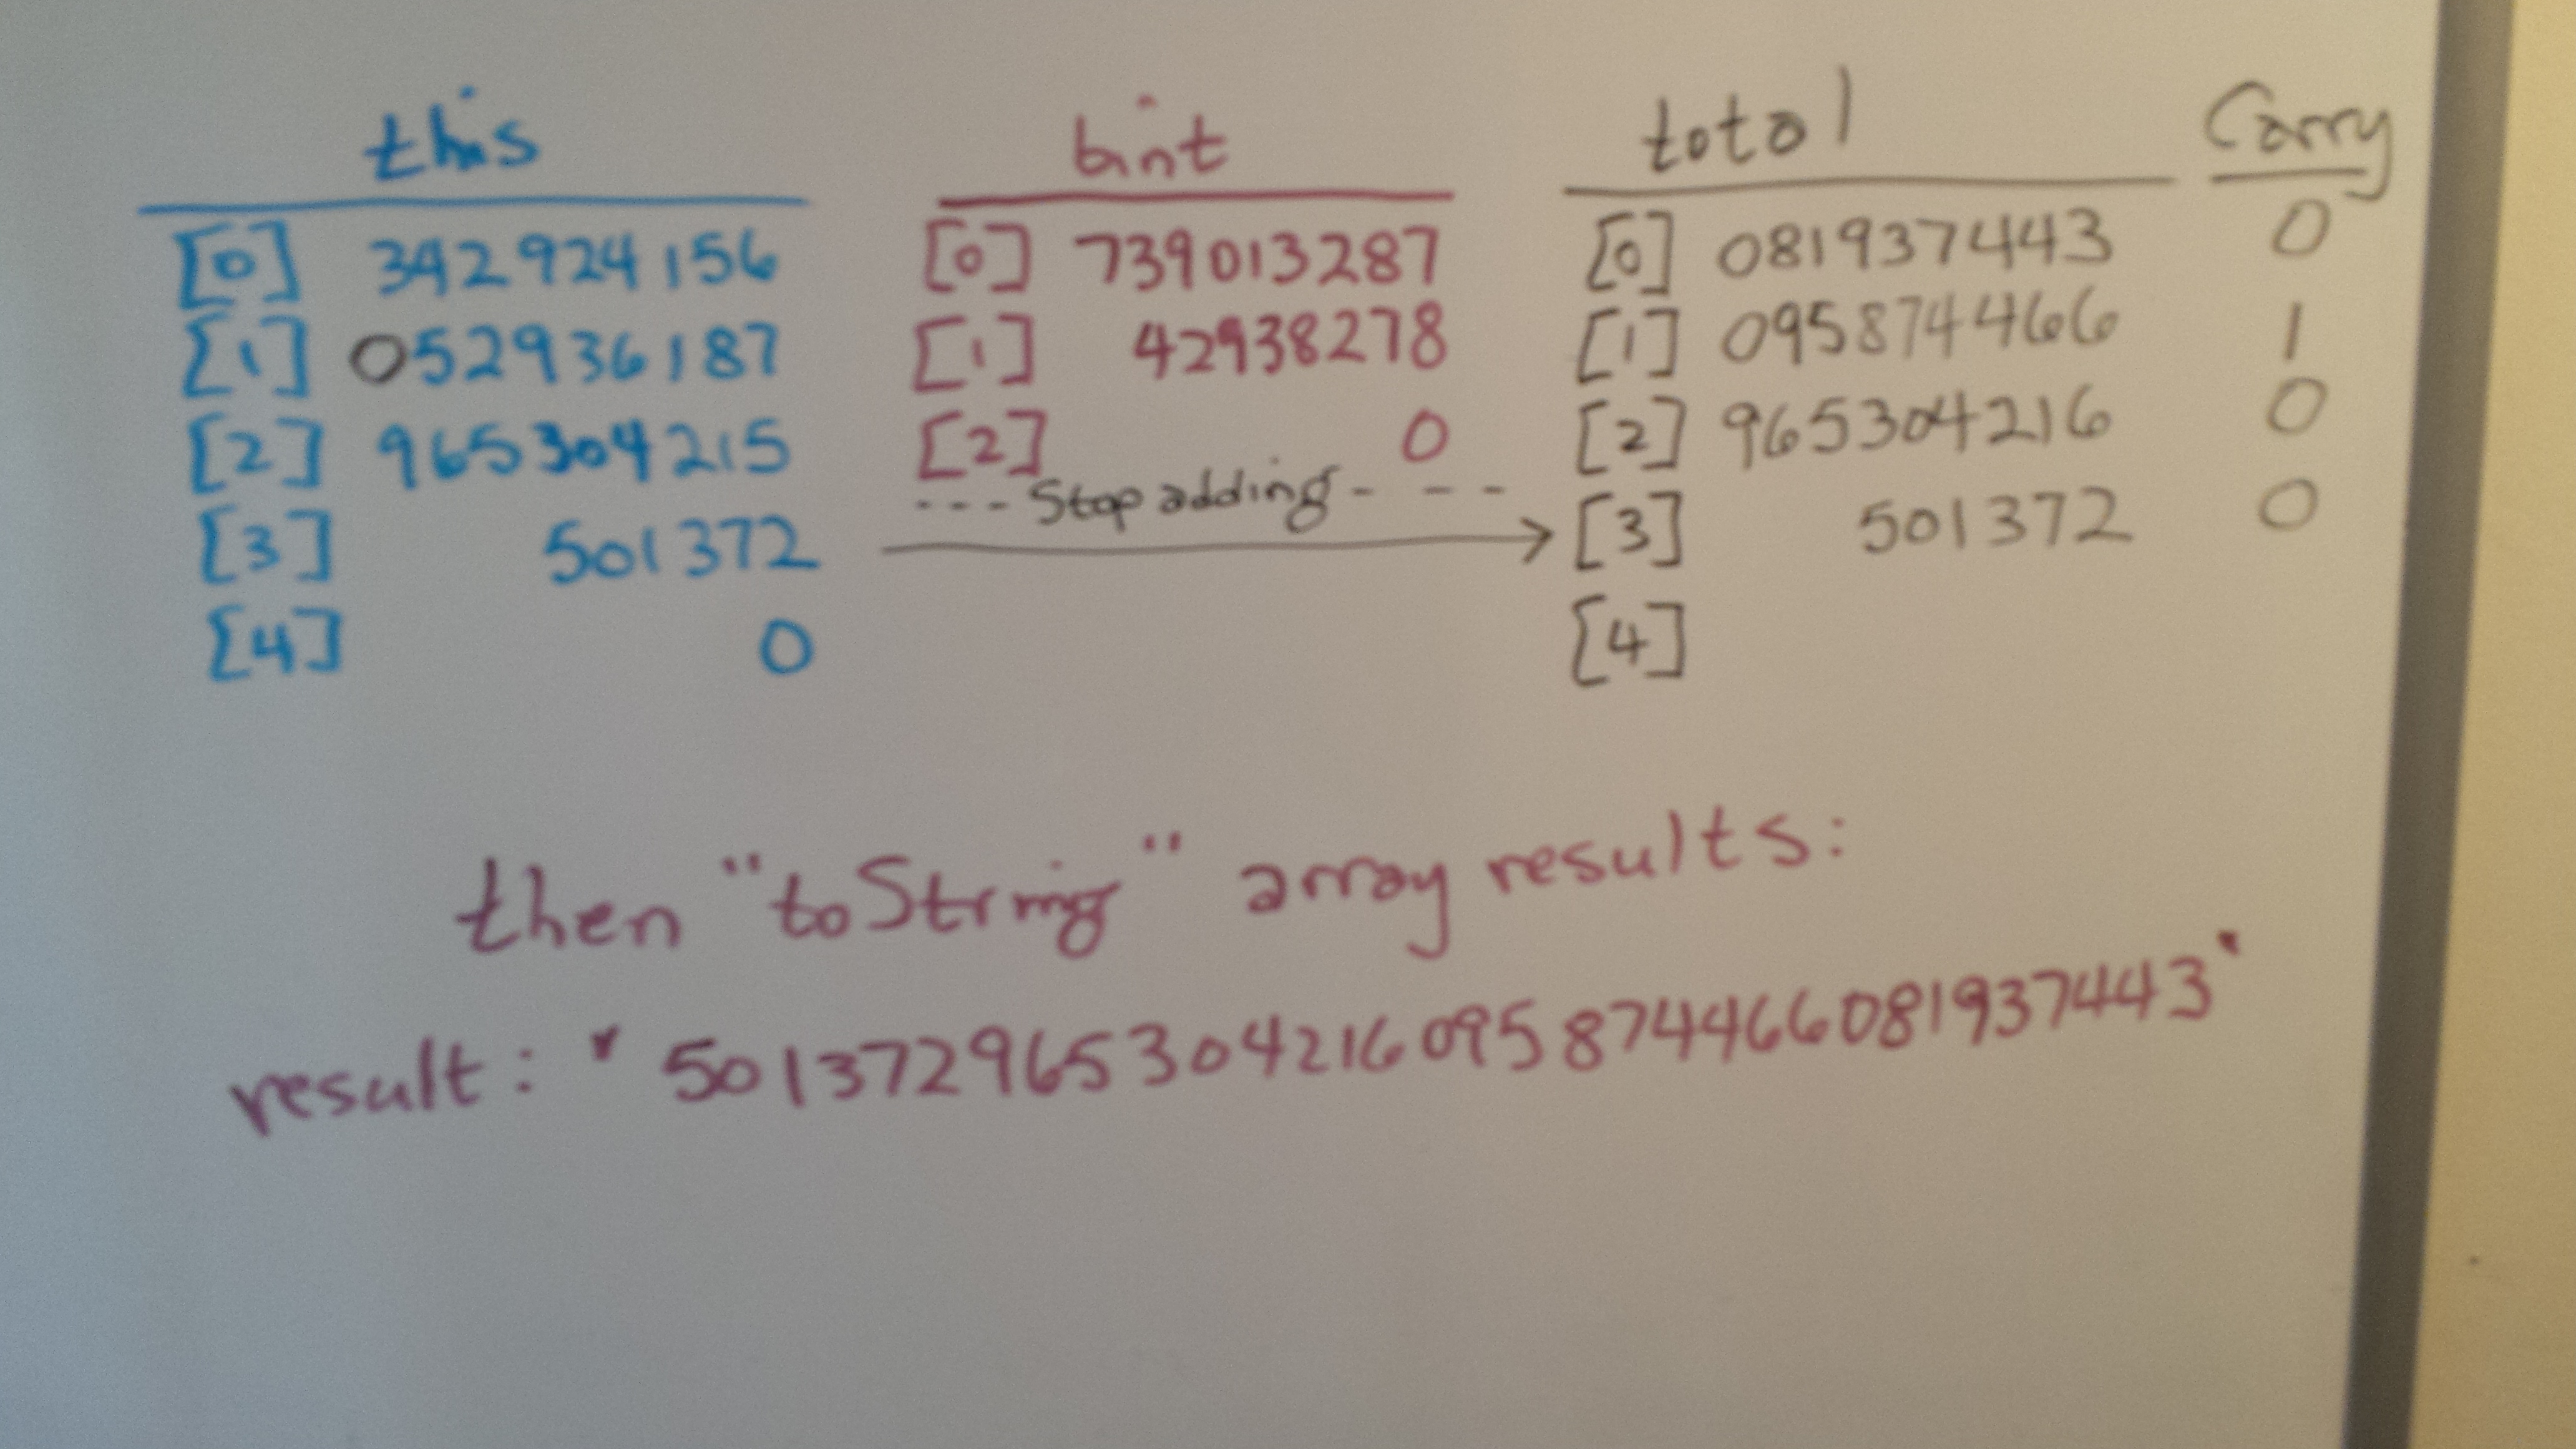 this bint total Carry
[0] 342924156 [0] 739013287 [0] 081937443 0
[1] 052936187 [1] 42938278 [1] 095874466 1
[2] 965304215 [2] 0 [2] 965304216 0
--- Stop adding - - -
[3] 501372 [3] 501372 0
[4] 0 [4]
then "toString" array results:
result: " 501372965304216095874466081937443"